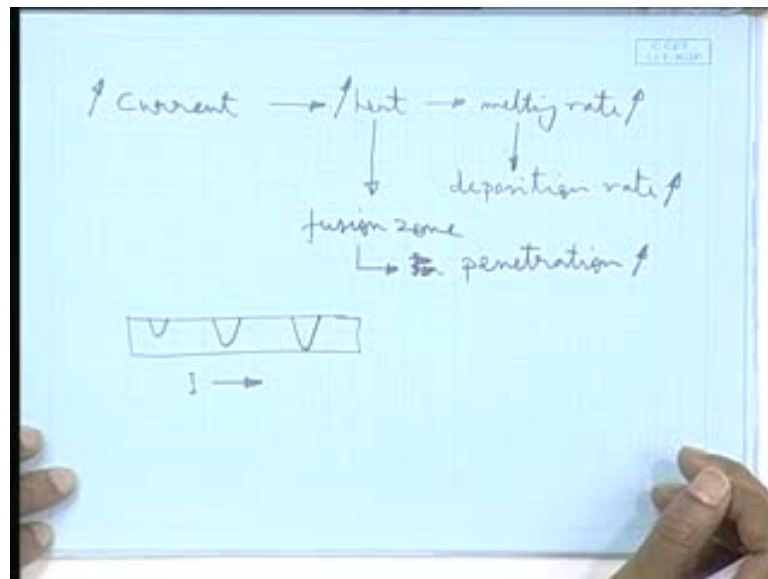 ↑ Current → ↑ heat → melting rate ↑
deposition rate ↑
fusion zone
penetration ↑
I →